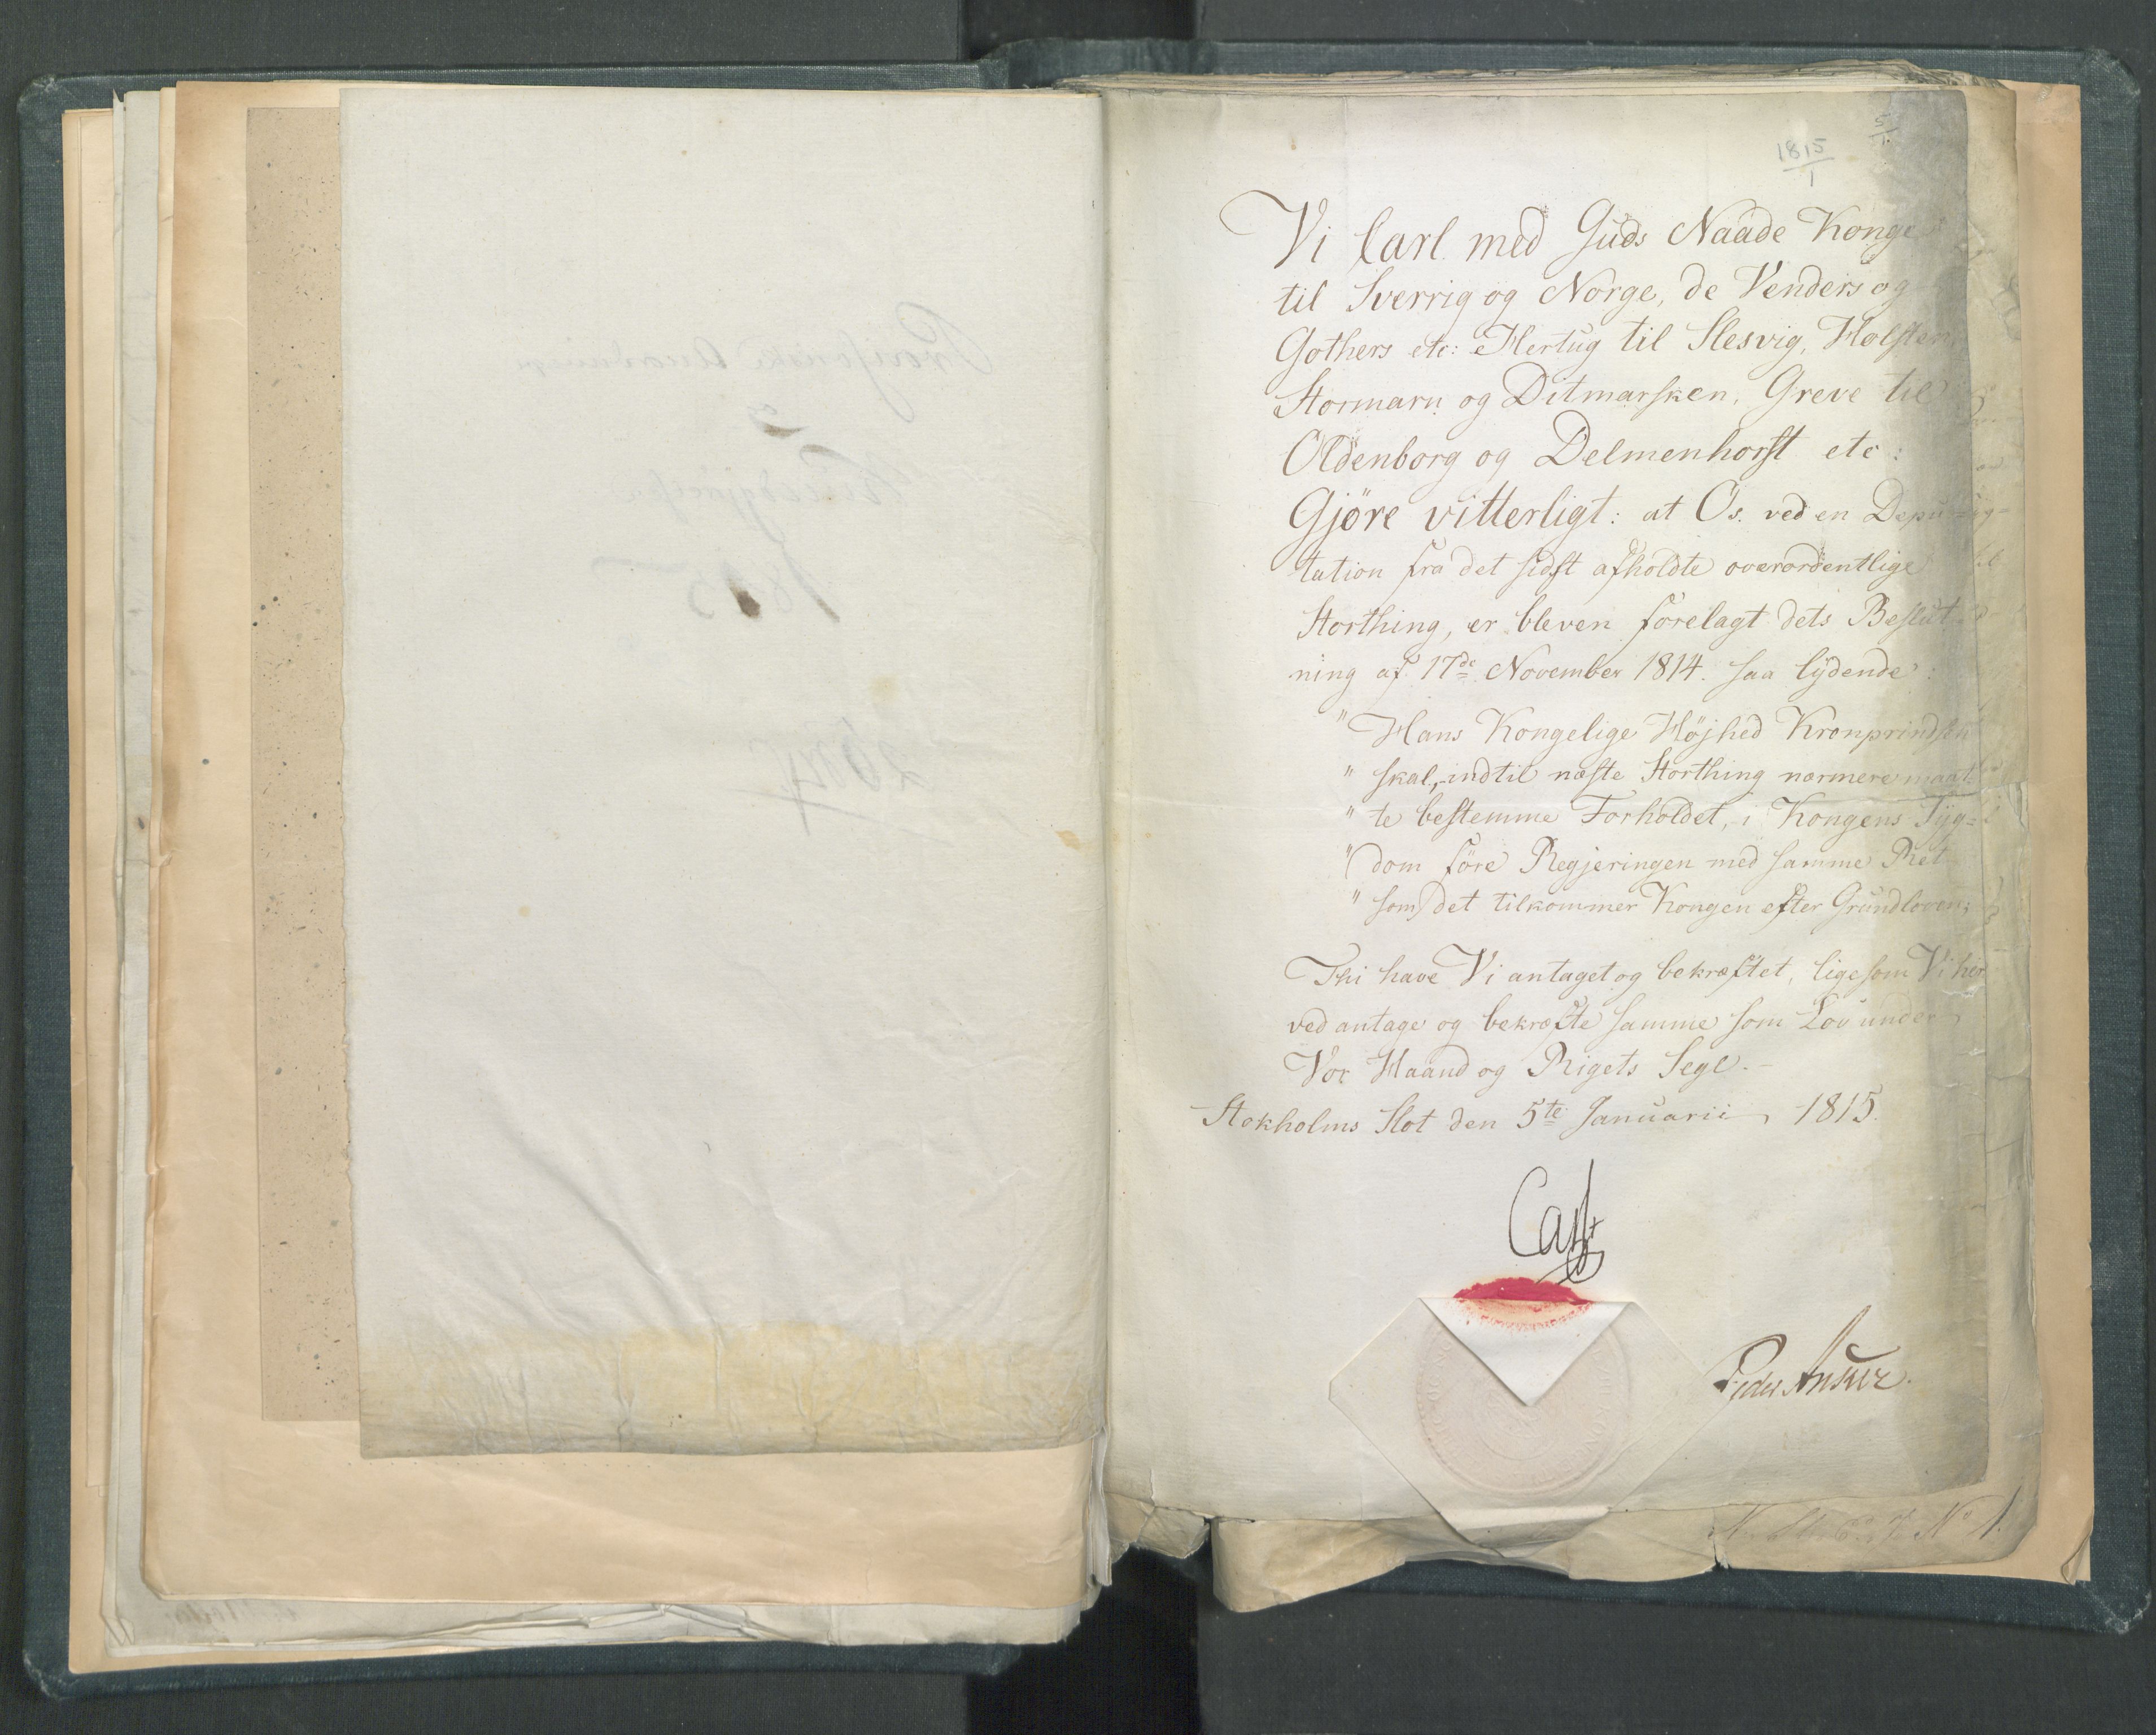 1815
1
5/1
Vi Carl med Guds Naade Konge
til Sverrig og Norge, de Venders og
Gothers etc: Hertug til Slesvig, Holsten,
Stormarn og Ditmarsken, Greve til
Oldenborg og Delmenhorst etc:
Gjöre vitterligt: at Os ved en Depu-
tation fra det sidst afholdte overordentlige
Storthing, er bleven forelagt dets Beslut-
ning af 17de November 1814. saa lydende:
"Hans Kongelige Højhed Kronprindsen
" skal, indtil næste Storthing nærmere maat-
" te bestemme Forholdet, i Kongens Syg=
" dom före Regjeringen med samme Ret
" som det tilkommer Kongen efter Grundloven;
Thi have Vi antaget og bekræftet, ligesom Vi her-
ved antage og bekræfte samme som Lov under
Vor Haand og Rigets Segl.-
Stokholms Slot den 5te Januarii 1815.
Carl
Peder Anker.